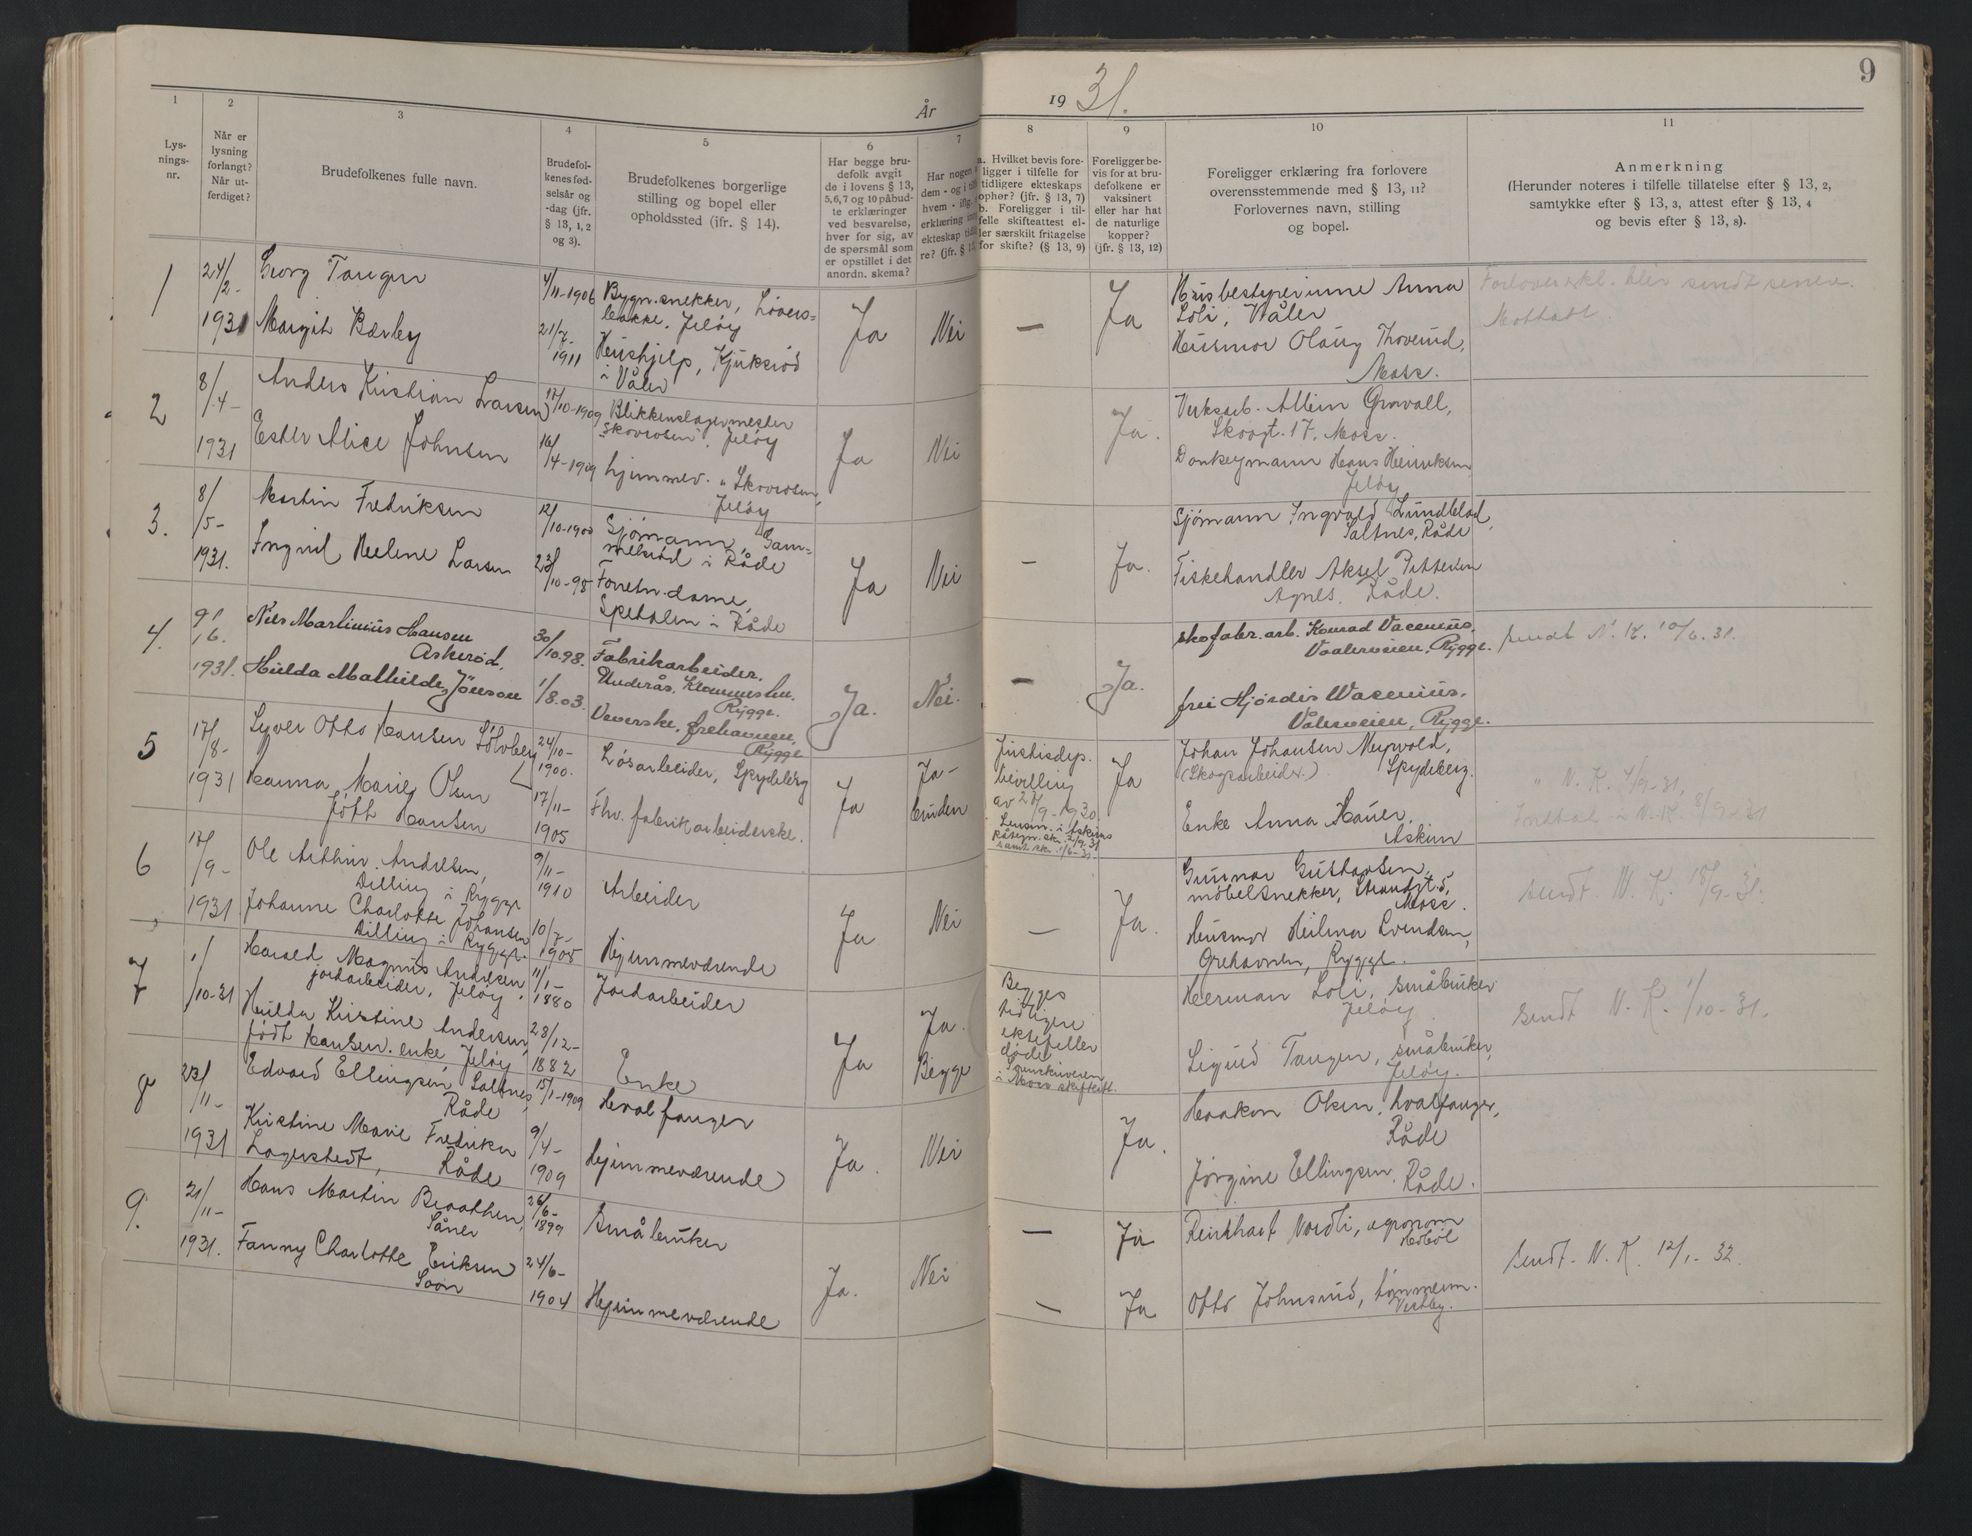 År 1931.
9
1
2
3
4
5
6
7
8
9
10
11
Lys-
nings-
nr.
Når er
lysning
forlangt?
Når ut-
ferdiget?
Brudefolkenes fulle navn.
Brudefol-
kenes fød-
selsår og
-dag (jfr.
§ 13, 1, 2
og 3).
Brudefolkenes borgerlige
stilling og bopel eller
opholdssted (ifr. § 14).
Har begge bru-
defolk avgit
de i lovens § 13,
5, 6, 7 og 10 påbud-
te erklæringer
ved besvarelse,
hver for sig, av
de spørsmål som
er opstillet i det
anordn. skema?
Har nogen
dem - og i
hvem - iflg.
erklæring
ekteskap
re? (jfr. §
a. Hvilket bevis fore-
ligger i tilfelle for
tidligere ekteskaps
ophør? (jfr. § 13, 7)
b. Foreligger i til-
felle skifteattest el-
ler særskilt fritagelse
for skifte? (§ 13, 9)
Foreligger be-
vis for at bru-
defolkene er
vaksinert
eller har hat
de naturlige
kopper?
(jfr. § 13, 12)
Foreligger erklæring fra forlovere
overensstemmende med § 13, 11?
Forlovernes navn, stilling
og bopel.
Anmerkning
(Herunder noteres i tilfelle tillatelse efter § 13, 2,
samtykke efter § 13, 3, attest efter § 13, 4
og bevis efter § 13, 8).
1
24/2-
1931
Georg Tangen
Margit Bærby
4/11-1906
21/7-
1911
Bygn.snekker, Løvers-
bakke, Jeløy
Hushjelp, Kjuksrød
i Våler
Ja
Nei
—
Ja
Husbestyrerinne Anna
Loli, Våler
Husmor Olaug Thorerud,
Moss.
Forlovererkl. blir sendt senere.
Mottatt.
2
8/4-
1931
Anders Kristian Larsen
Ester Alice Johnsen
17/10-1909
16/4-1909
Blikkenslagermester
Skovrosen, Jeløy
hjemmev. „ Skovrosen,
Jeløy
Ja
Nei
Ja.
Verksarb. Allein Gravall,
Skovgt. 17, Moss.
Donkeymann Hans Henriksen
Jeløy
3.
8/5-
1931.
Martin Fredriksen
Ingrid Helene Larsen
12/10-1900
23/10-98
Sjømann, Gam-
melsrød i Råde
Forretn.dame,
Spetalen i Råde
Ja
Nei
—
Ja.
Sjømann Ingvald Lundblad,
Saltnes, Råde
Fiskehandler Aksel Pettersen
Agnes, Råde.
4.
9/6.
1931.
Nils Martinius Hansen
Askerød,
Hulda Mathilde Jönson
30/10.98.
1/8.03.
Fabrikarbeider.
Underås, Klommesten.
Rygge.
Veverske, Ørehavnen,
Rygge
Ja.
Nei.
—
Ja.
skofabr.arb. Konrad Vacenius,
Vaalerveien, Rygge.
fru Hjørdis Wacenius.
Vålerveien, Rygge.
sendt N. K. 10/6.31.
5
17/8-
1931
Syver Otto Hansen Sölvberg
Hanna Marie Olsen
født Hansen
24/10-
1900.
17/11-
1905
Løsarbeider, Spydeberg
Fhv. fabrikarbeiderske.
Ja
Ja-
bruden
Justisdep.
bevilling
av 27/9-1930.
Ja
Johan Johansen Myrvold,
(Skogsarbeider.) Spydeberg.
Enke Anna Hauer,
Askim
„ N. K. 4/9-31,
8/9-31
6
17/9-
1931
Ole Arthur Andresen,
Dilling i Rygge
Johanne Charlotte Johansen
Dilling i Rygge.
9/11-
1910
10/7-
1905
Arbeider
Hjemmeværende
Ja
Nei
—
Ja.
Gunnar Gustavsen,
møbelsnekker, Strandgt. 5,
Moss.
Husmor Hilma Svendsen,
Ørehavnen, Rygge.
Sendt. N. K. 18/9-31.
7
1/10-31
Harald Magnus Andresen
jordarbeider, Jeløy.
Hulda Kristine Andersen,
født Hansen. enke, Jeløy
11/1-
1880
28/12-
1882
Jordarbeider
Enke
Ja
Ja.
Begge
Begges
tidligere
ektefeller
døde
Sorenskriveren
i Moss skifteatt.
Herman Loli, småbruker
Jeløy.
Sigurd Tangen, småbruker,
Jeløy.
Sendt N. K. 1/10-31.
8
23/11-
1931
Edvard Ellingsen, Saltnes,
Råde
Kristine Marie Fredrikke
Lagerstedt, Råde
15/1-1909
9/4-
1909
Hvalfanger
Hjemmeværende
Ja.
Nei
Ja.
Haakon Olsen, hvalfanger,
Råde
Jørgine Ellingsen, Råde.
9.
21/11-
1931.
Hans Martin Braathen,
Såner
Fanny Charlotte Eriksen
Soon
26/6-
1899
24/6-
1904
Småbruker
Hjemmeværende
Ja.
Nei
—
Ja
Reinhart Nordli, agronom
Hobøl
—
Ja
Otto Johnsrud, tømmerm.
Vestby.
Sendt. N. K. 12/1-32.